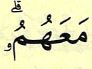 مَعَهُمُۥٓۖ